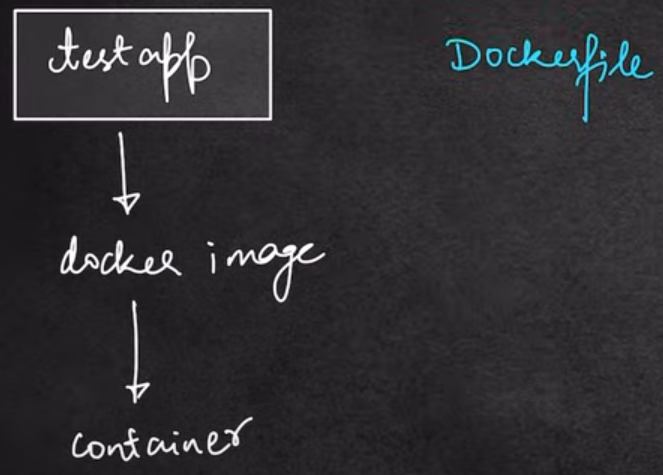 testapp
Dockerfile
docker image
container